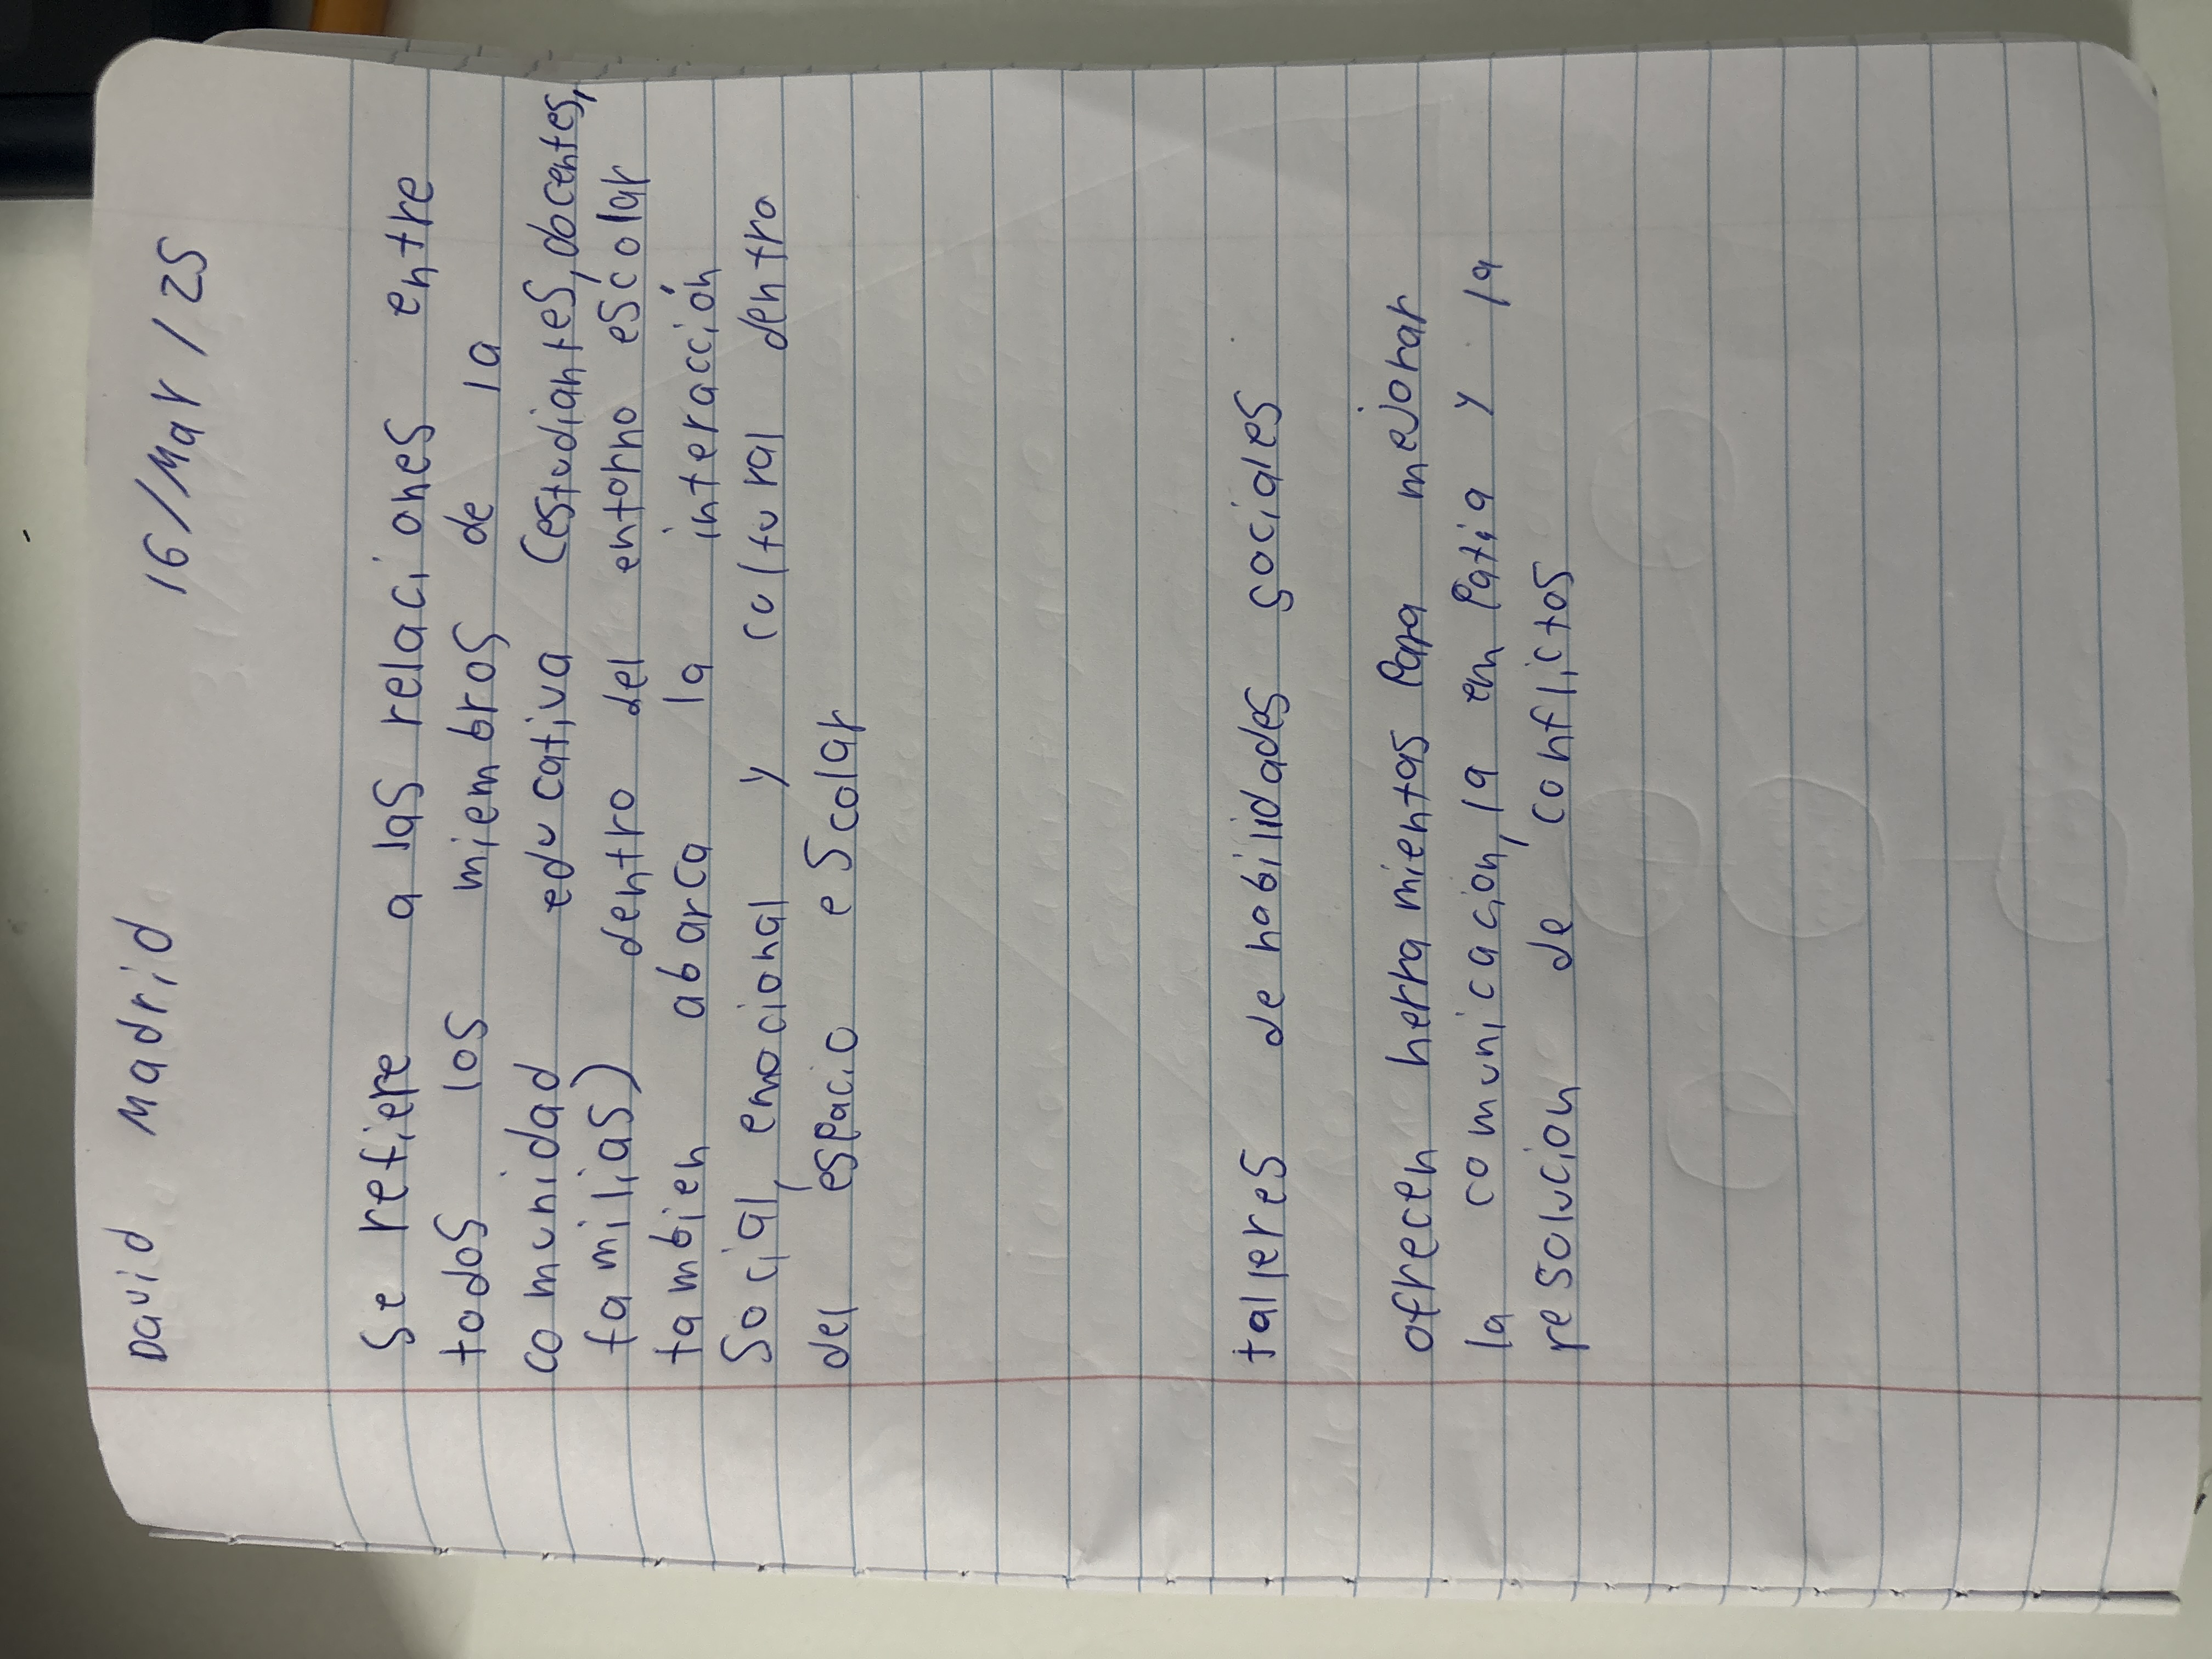 David Madrid 16/Mar/25
Se refiere a las relaciones entre
todos los miembros de la
comunidad educativa (estudiantes, docentes,
familias) dentro del entorno escolar
tambien abarca la interacción
social, emocional y cultural dentro
del espacio escolar
talleres de habilidades sociales
ofrecen herramientas para mejorar
la comunicacion, la empatia y la
resolucion de conflictos